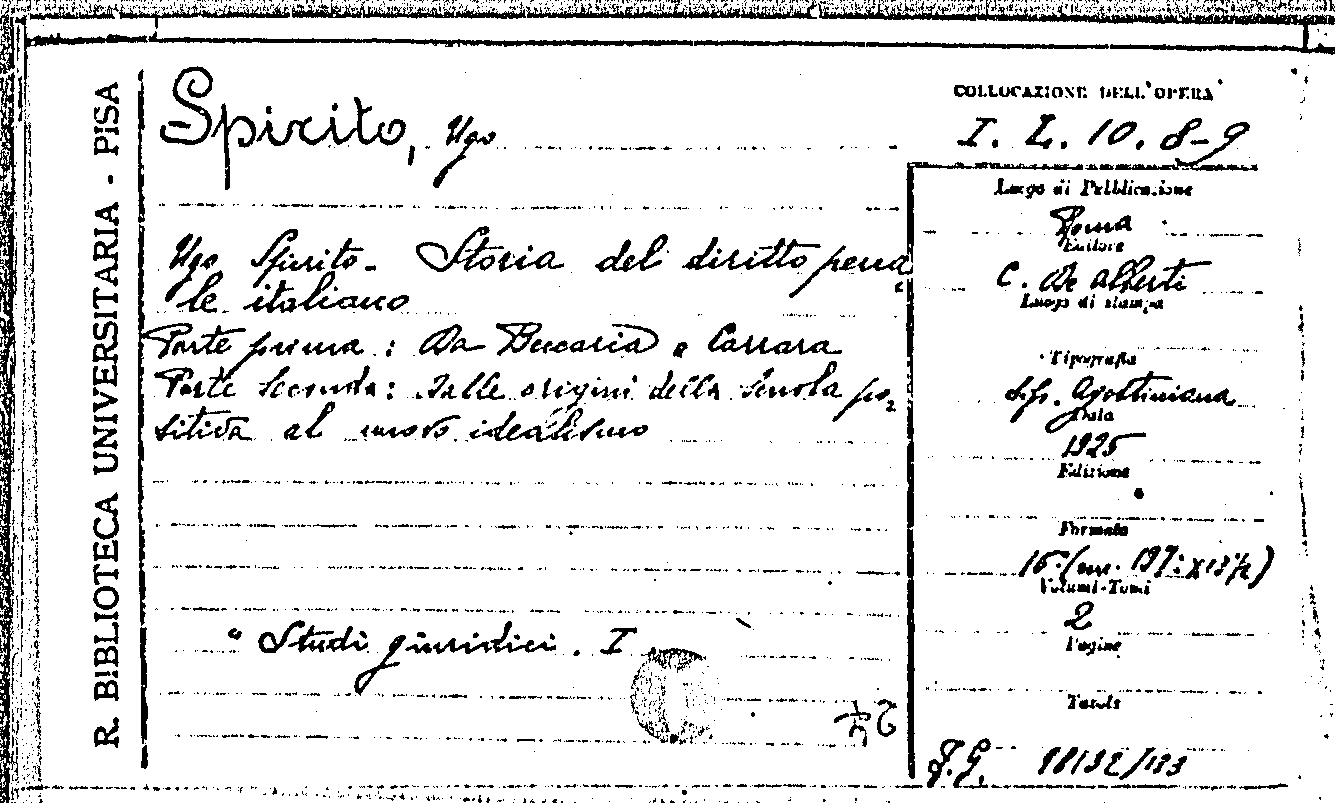 R. BIBLIOTECA UNIVERSITARIA - PISA
Spirito, Ugo
Ugo Spirito - Storia del diritto pena
le italiano
Parte prima: Da Beccaria a Carrara
Parte seconda: Dalle origini della Scuola po
sitiva al nuovo idealismo
" Studi giuridici. I
COLLOCAZIONE DELL'OPERA
I. L. 10. 8-9
Luogo di Pubblicazione
Roma
Editore
C. De Alberti
Luogo di stampa
Tipografia
Tip. Agostiniana
Data
1925
Edizione
Formato
16°
Volumi-Tomi
2
Pagine
Tavole
J.G. 98132/133